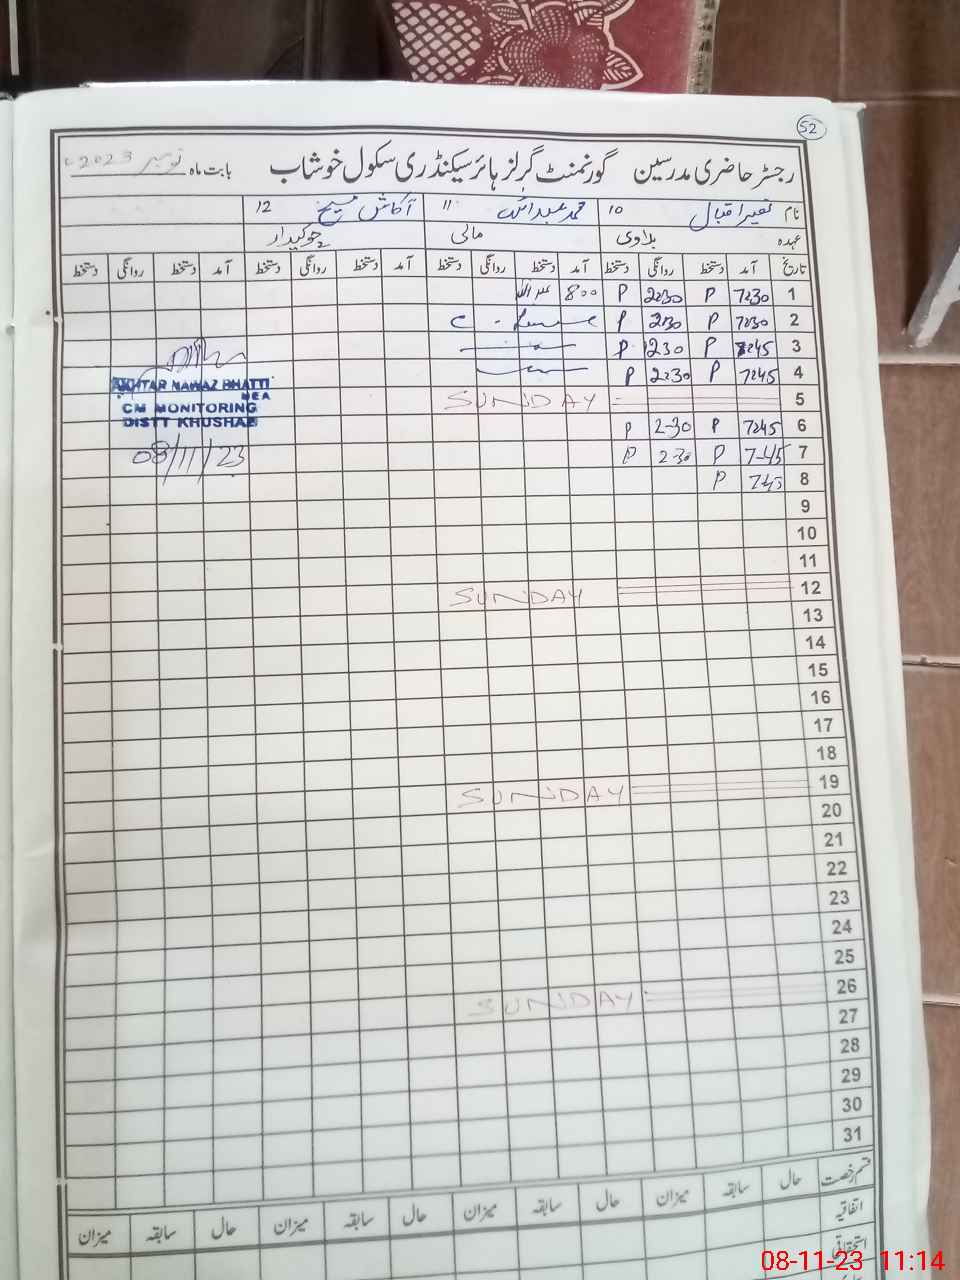 52
رجسٹر حاضری مدرسین گورنمنٹ گرلز ہائر سیکنڈری سکول خوشاب بابت ماہ نومبر 2023ء
نام 10 نصیر اقبال 11 محمد عبداللہ 12 آکاش مسیح
عہدہ بلاوی مالی چوکیدار
تاریخ آمد دستخط روانگی دستخط آمد دستخط روانگی دستخط آمد دستخط روانگی دستخط آمد دستخط روانگی دستخط
1 7:30 P 2:30 P 8:00 عبداللہ
2 7:30 P 2:30 P
3 7:45 P 2:30 P
4 7:45 P 2:30 P
5 SUNDAY
6 7:45 P 2-30 P
7 7-45 P 2-30 P
8 7:45 P
9
10
11
12 SUNDAY
13
14
15
16
17
18
19 SUNDAY
20
21
22
23
24
25
26 SUNDAY
27
28
29
30
31
AKHTAR NAWAZ BHATTI
MEA
CM MONITORING
DISTT KHUSHAB
08/11/23
قسم رخصت حال سابقہ میزان حال سابقہ میزان حال سابقہ میزان حال سابقہ میزان
اتفاقیہ
استحقاقی
08-11-23 11:14